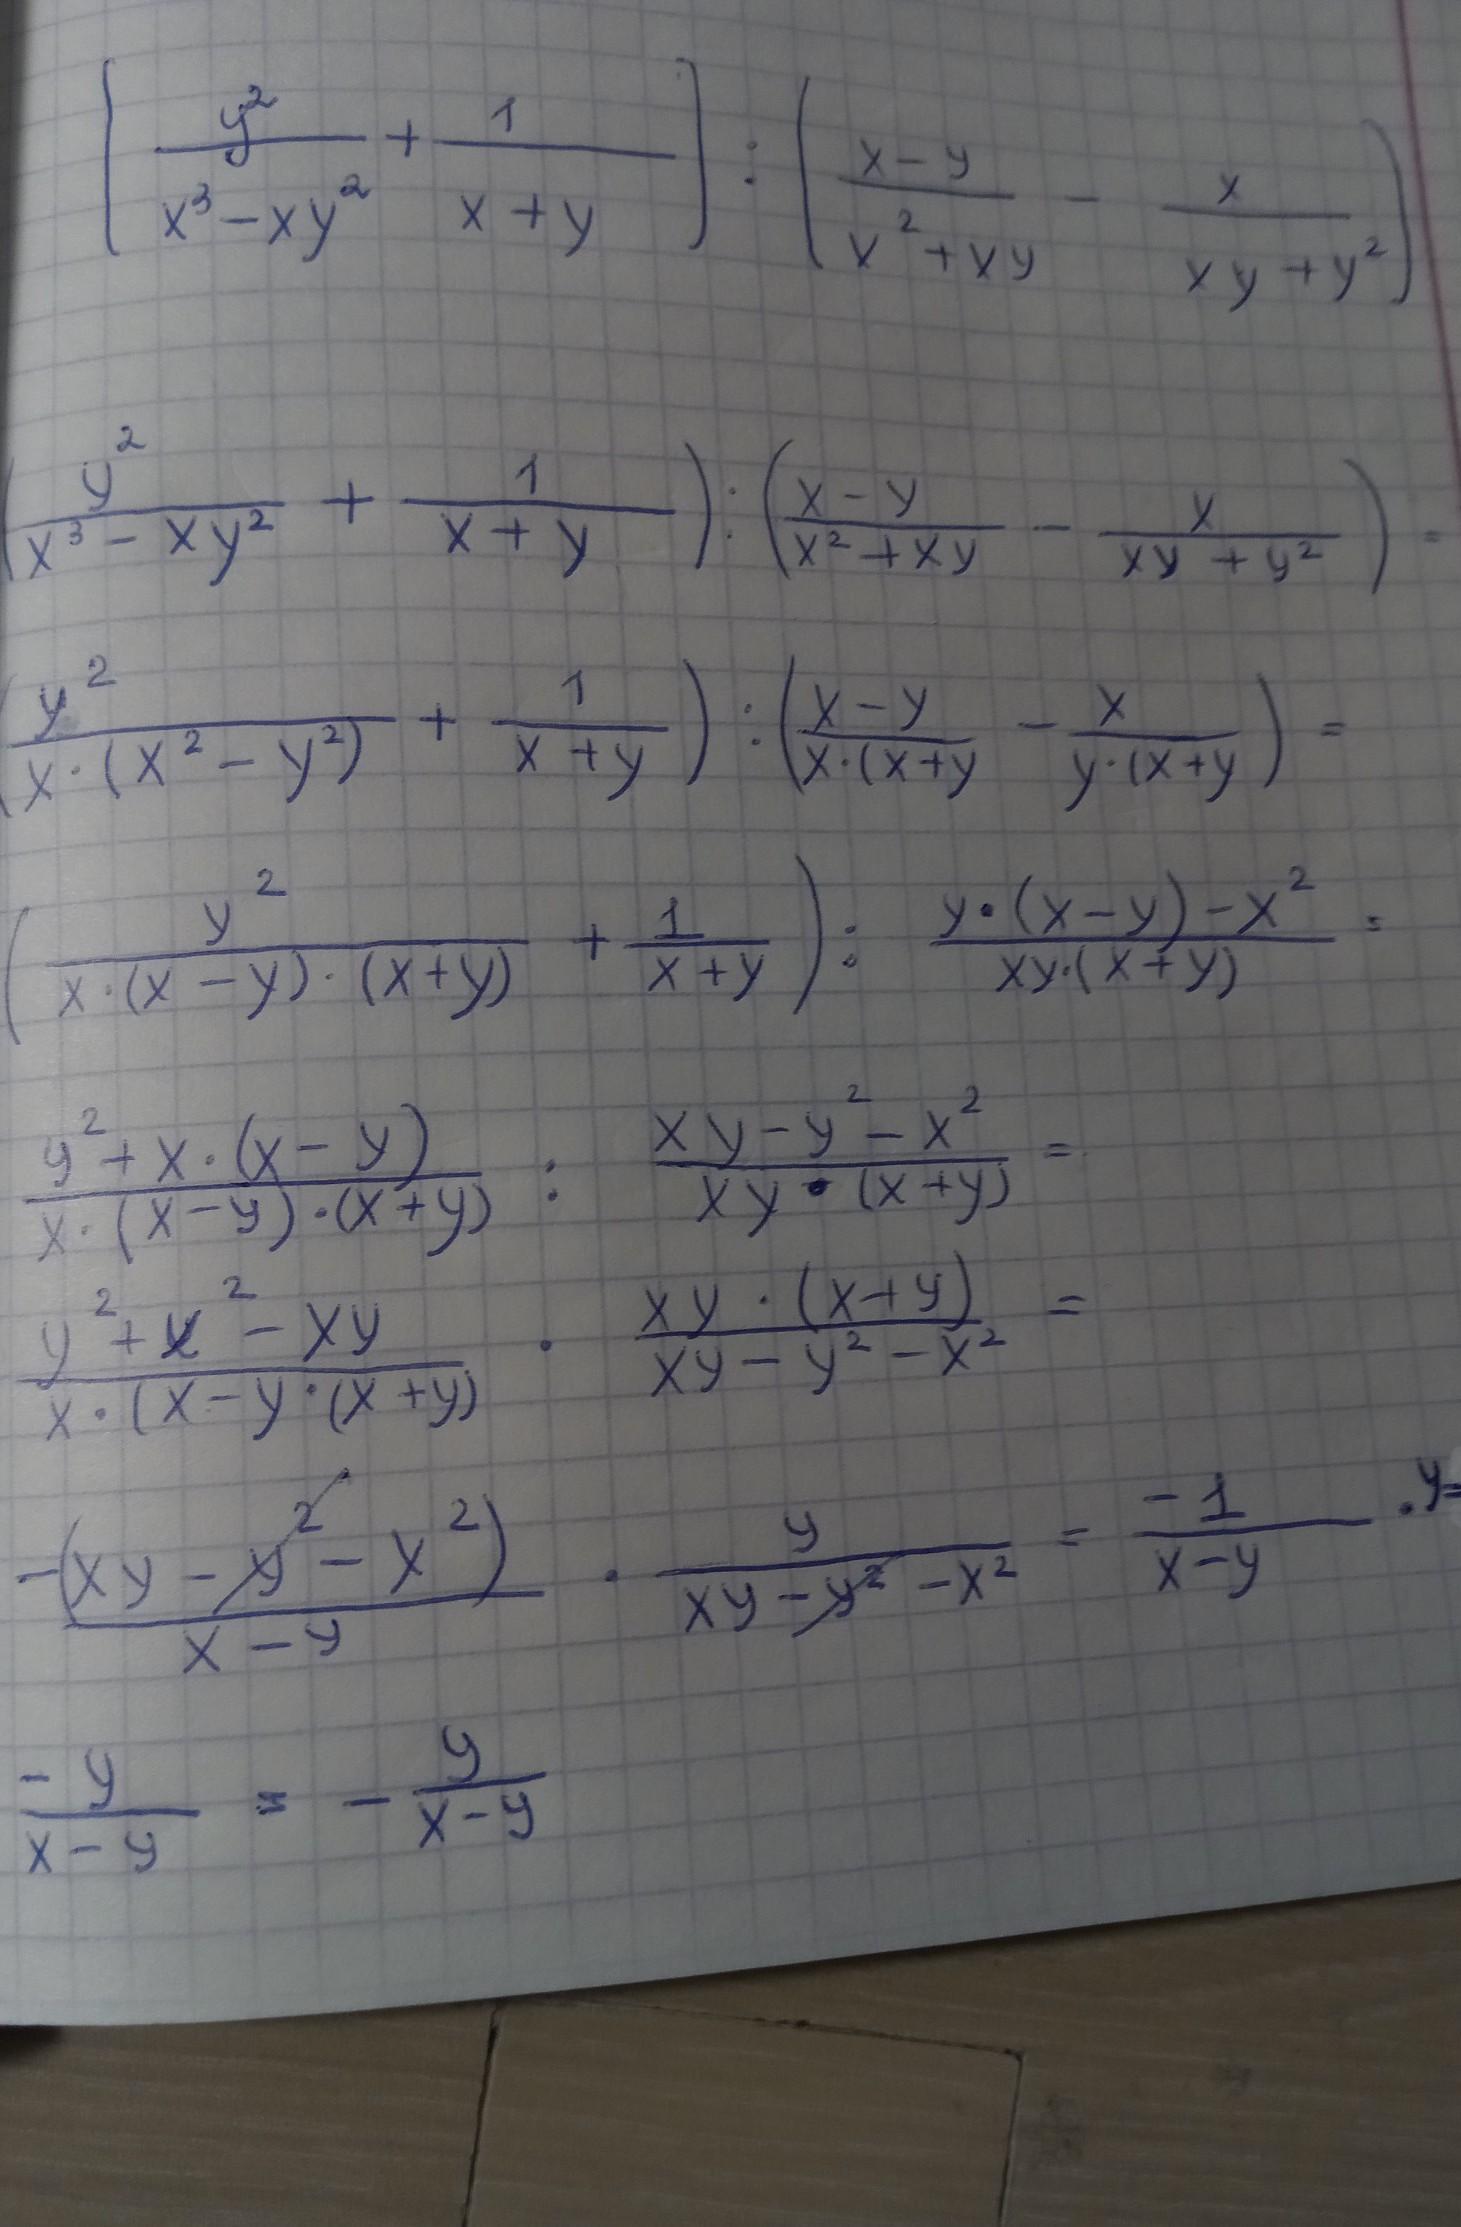 [y²/(x³ - xy²) + 1/(x + y)] : ((x - y)/(x² + xy) - x/(xy + y²))
(y²/(x³ - xy²) + 1/(x + y)) : ((x - y)/(x² + xy) - x/(xy + y²)) =
(y²/(x·(x² - y²)) + 1/(x + y)) : ((x - y)/(x·(x + y) - x/(y·(x + y)) =
(y²/(x·(x - y)·(x + y)) + 1/(x + y)) : (y·(x - y) - x²)/(xy·(x + y)) =
(y² + x·(x - y))/(x·(x - y)·(x + y)) : (xy - y² - x²)/(xy·(x + y)) =
(y² + x² - xy)/(x·(x - y·(x + y)) · (xy·(x + y))/(xy - y² - x²) =
-(xy - y² - x²)/(x - y) · y/(xy - y² - x²) = -1/(x - y) · y =
-y/(x - y) = - y/(x - y)